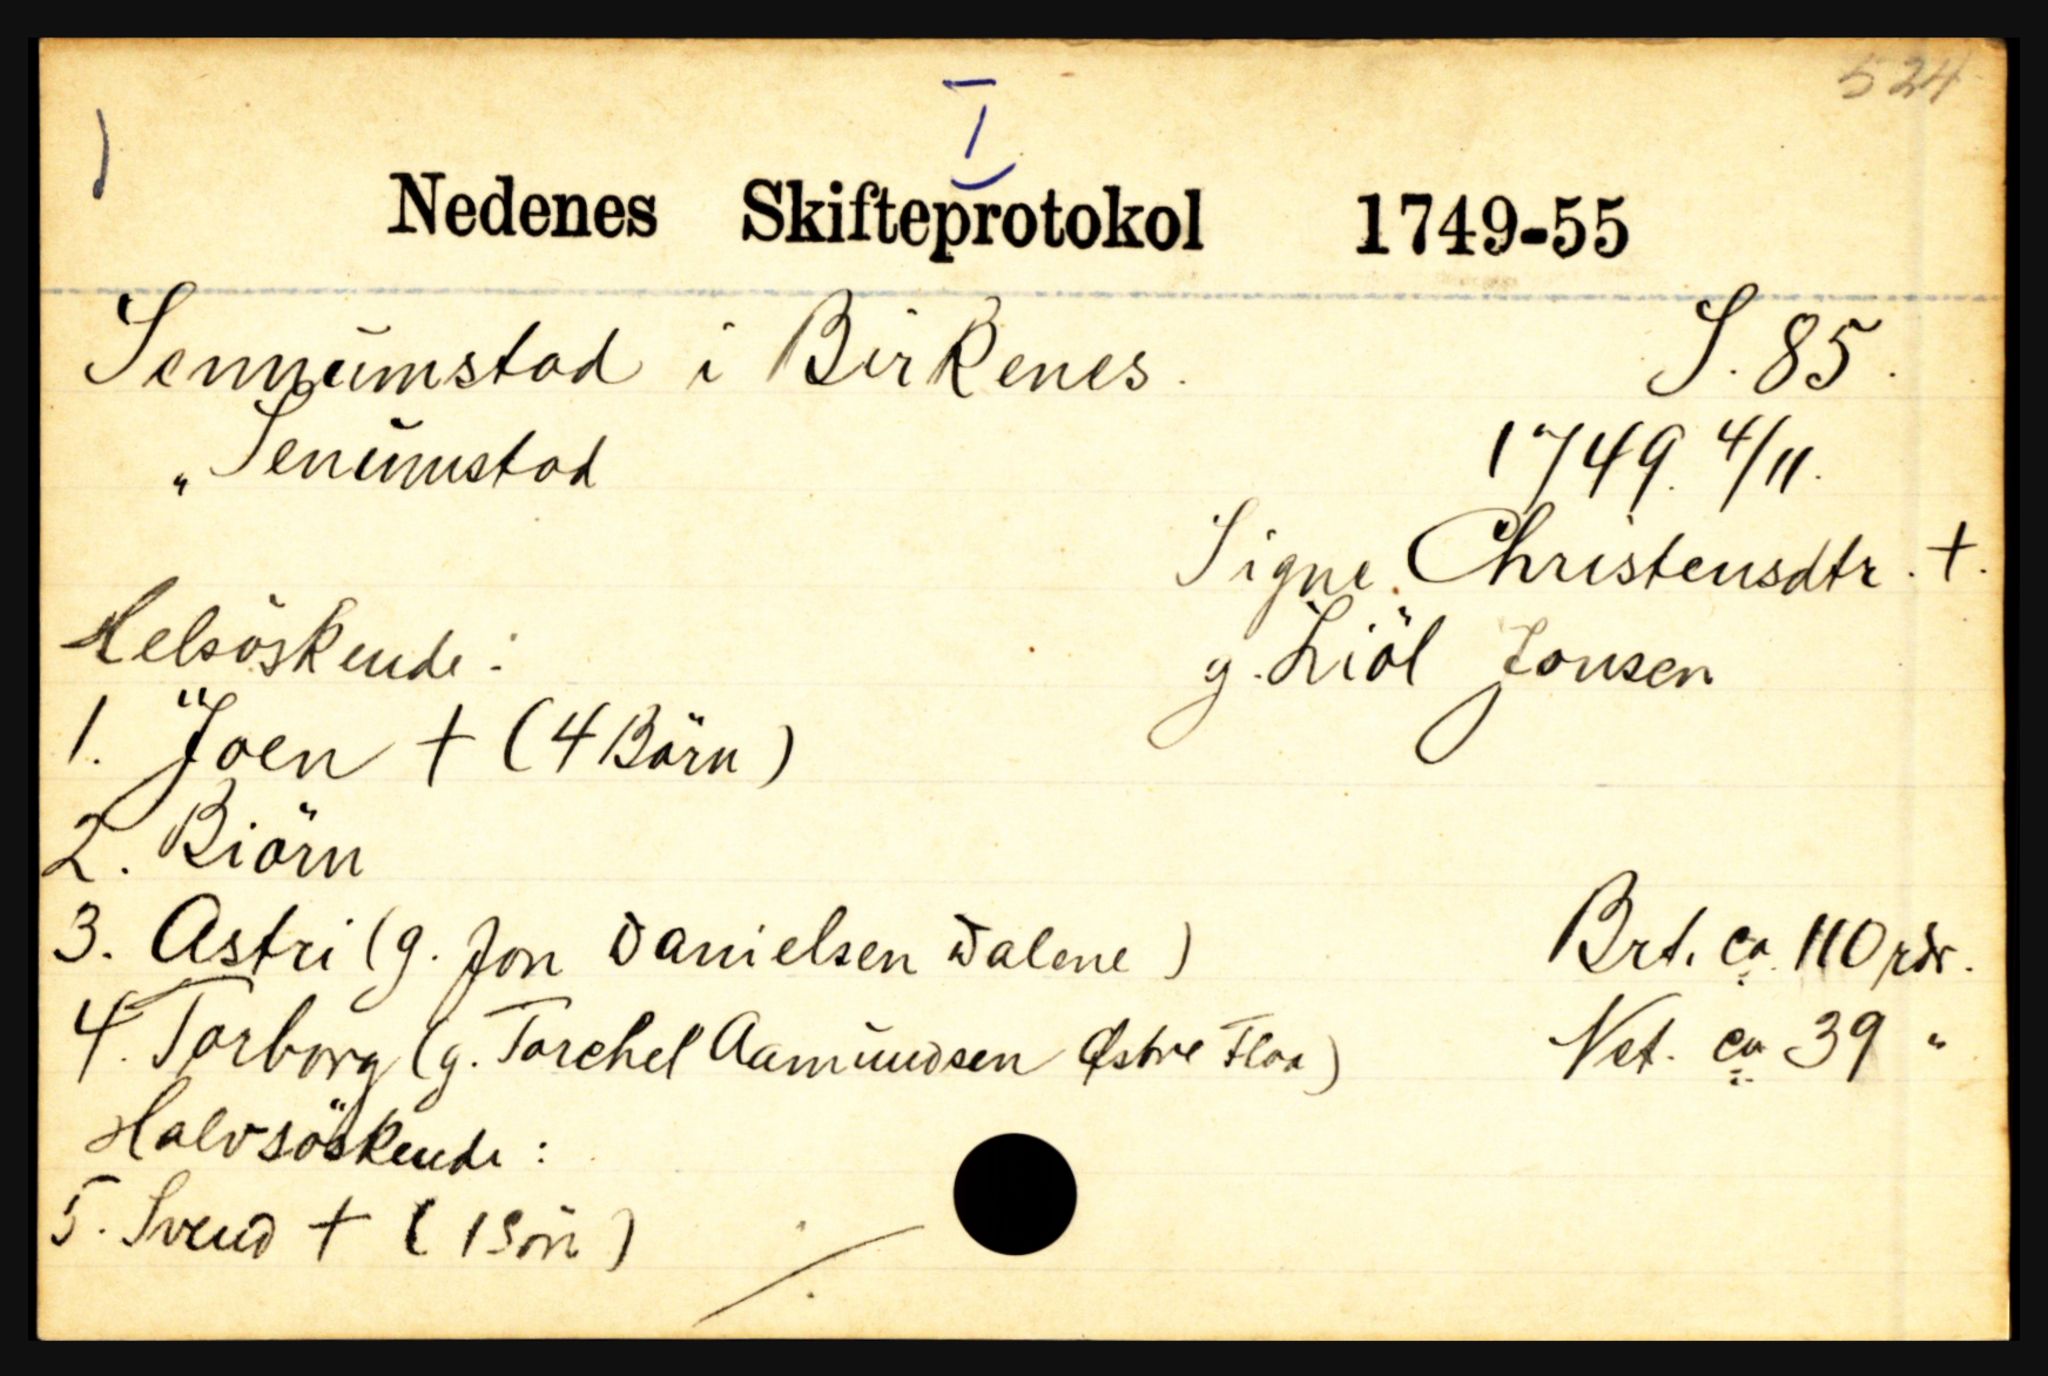 524
)
I
Nedenes Skifteprotokol 1749-55
Sennumstad i Birkenes. S. 85.
„ Senumstad 1749. 4/11.
Signe Christensdtr. †.
Helsöskende: g. Liöl Jonsen
1. Joen † (4 Börn)
2. Biörn
3. Astri (g. Jon Danielsen Dalene) Brt. ca. 110 rdr.
4. Torborg (g. Torchel Aamundsen Østre Flaa) Net. ca 39 "
Halvsöskende:
5. Svend † (1 Sön)